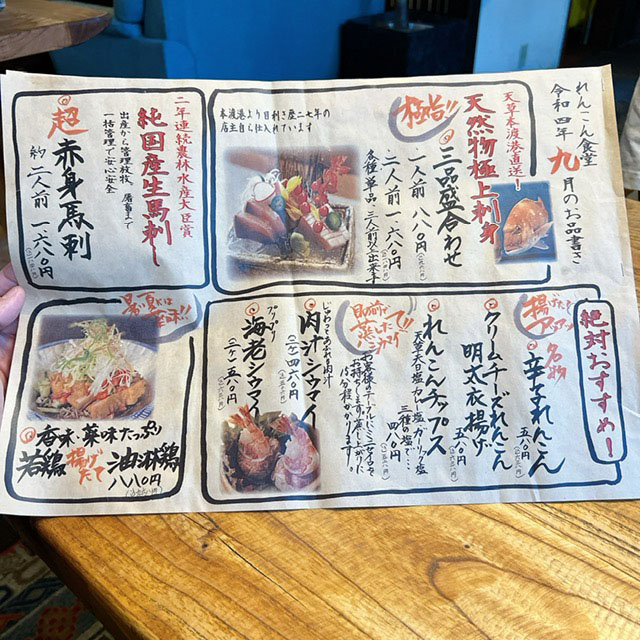 れんこん食堂
令和四年九月のお品書き
天草本渡港直送！
天然物極上刺身
極旨!!
三品盛合わせ
一人前 八八〇円
二人前 一六八〇円
各種単品・三人前以上出来ます
本渡港より目利き歴二七年の
店主自ら仕入れています
二年連続農林水産大臣賞
純国産生馬刺し
出産から管理放牧、屠畜まで
一括管理で安心安全
超赤身馬刺
約二人前 一六八〇円
絶対おすすめ！
揚げたて
アツアツ
名物
辛子れんこん
五八〇円
クリームチーズれんこん
明太衣揚げ
五八〇円
れんこんチップス
天草天日塩・カレー塩・ガーリック塩
三種の塩で…
四八〇円
目の前で
蒸したて!!
お客様テーブルにミニセイロで
お持ちします！蒸し上がりに
15分程かかります。
じゅわっとあふれる肉汁
肉汁シウマイ
(二ケ) 四八〇円
プリップリ
海老シウマイ
(二ケ) 五八〇円
暑い夏には
香味・薬味たっぷり
若鶏揚げたて油淋鶏
八八〇円